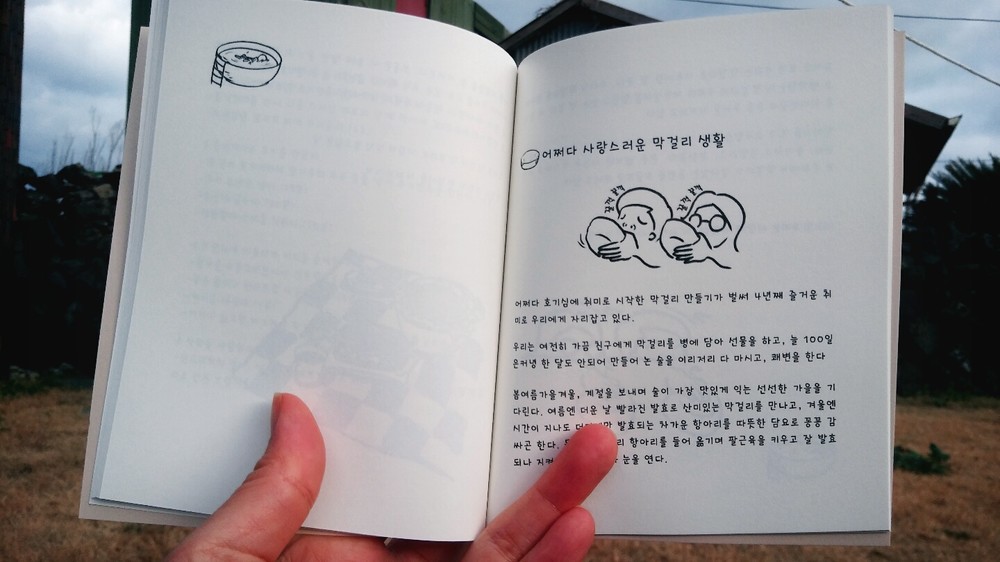 어쩌다 사랑스러운 막걸리 생활
꿀꺽 꿀꺽
꿀꺽 꿀꺽
어쩌다 호기심에 취미로 시작한 막걸리 만들기가 벌써 4년째 즐거운 취
미로 우리에게 자리잡고 있다.
우리는 여전히 가끔 친구에게 막걸리를 병에 담아 선물을 하고, 늘 100일
은커녕 한 달도 안되어 만들어 논 술을 이리저리 다 마시고, 쾌변을 한다
봄여름가을겨울, 계절을 보내며 술이 가장 맛있게 익는 선선한 가을을 기
다린다. 여름엔 더운 날 빨라진 발효로 산미있는 막걸리를 만나고, 겨울엔
시간이 지나도 발효되는 차가운 항아리를 따뜻한 담요로 꽁꽁 감
싸곤 한다. 항아리를 들어 옮기며 팔근육을 키우고 잘 발효
되나 눈을 연다.